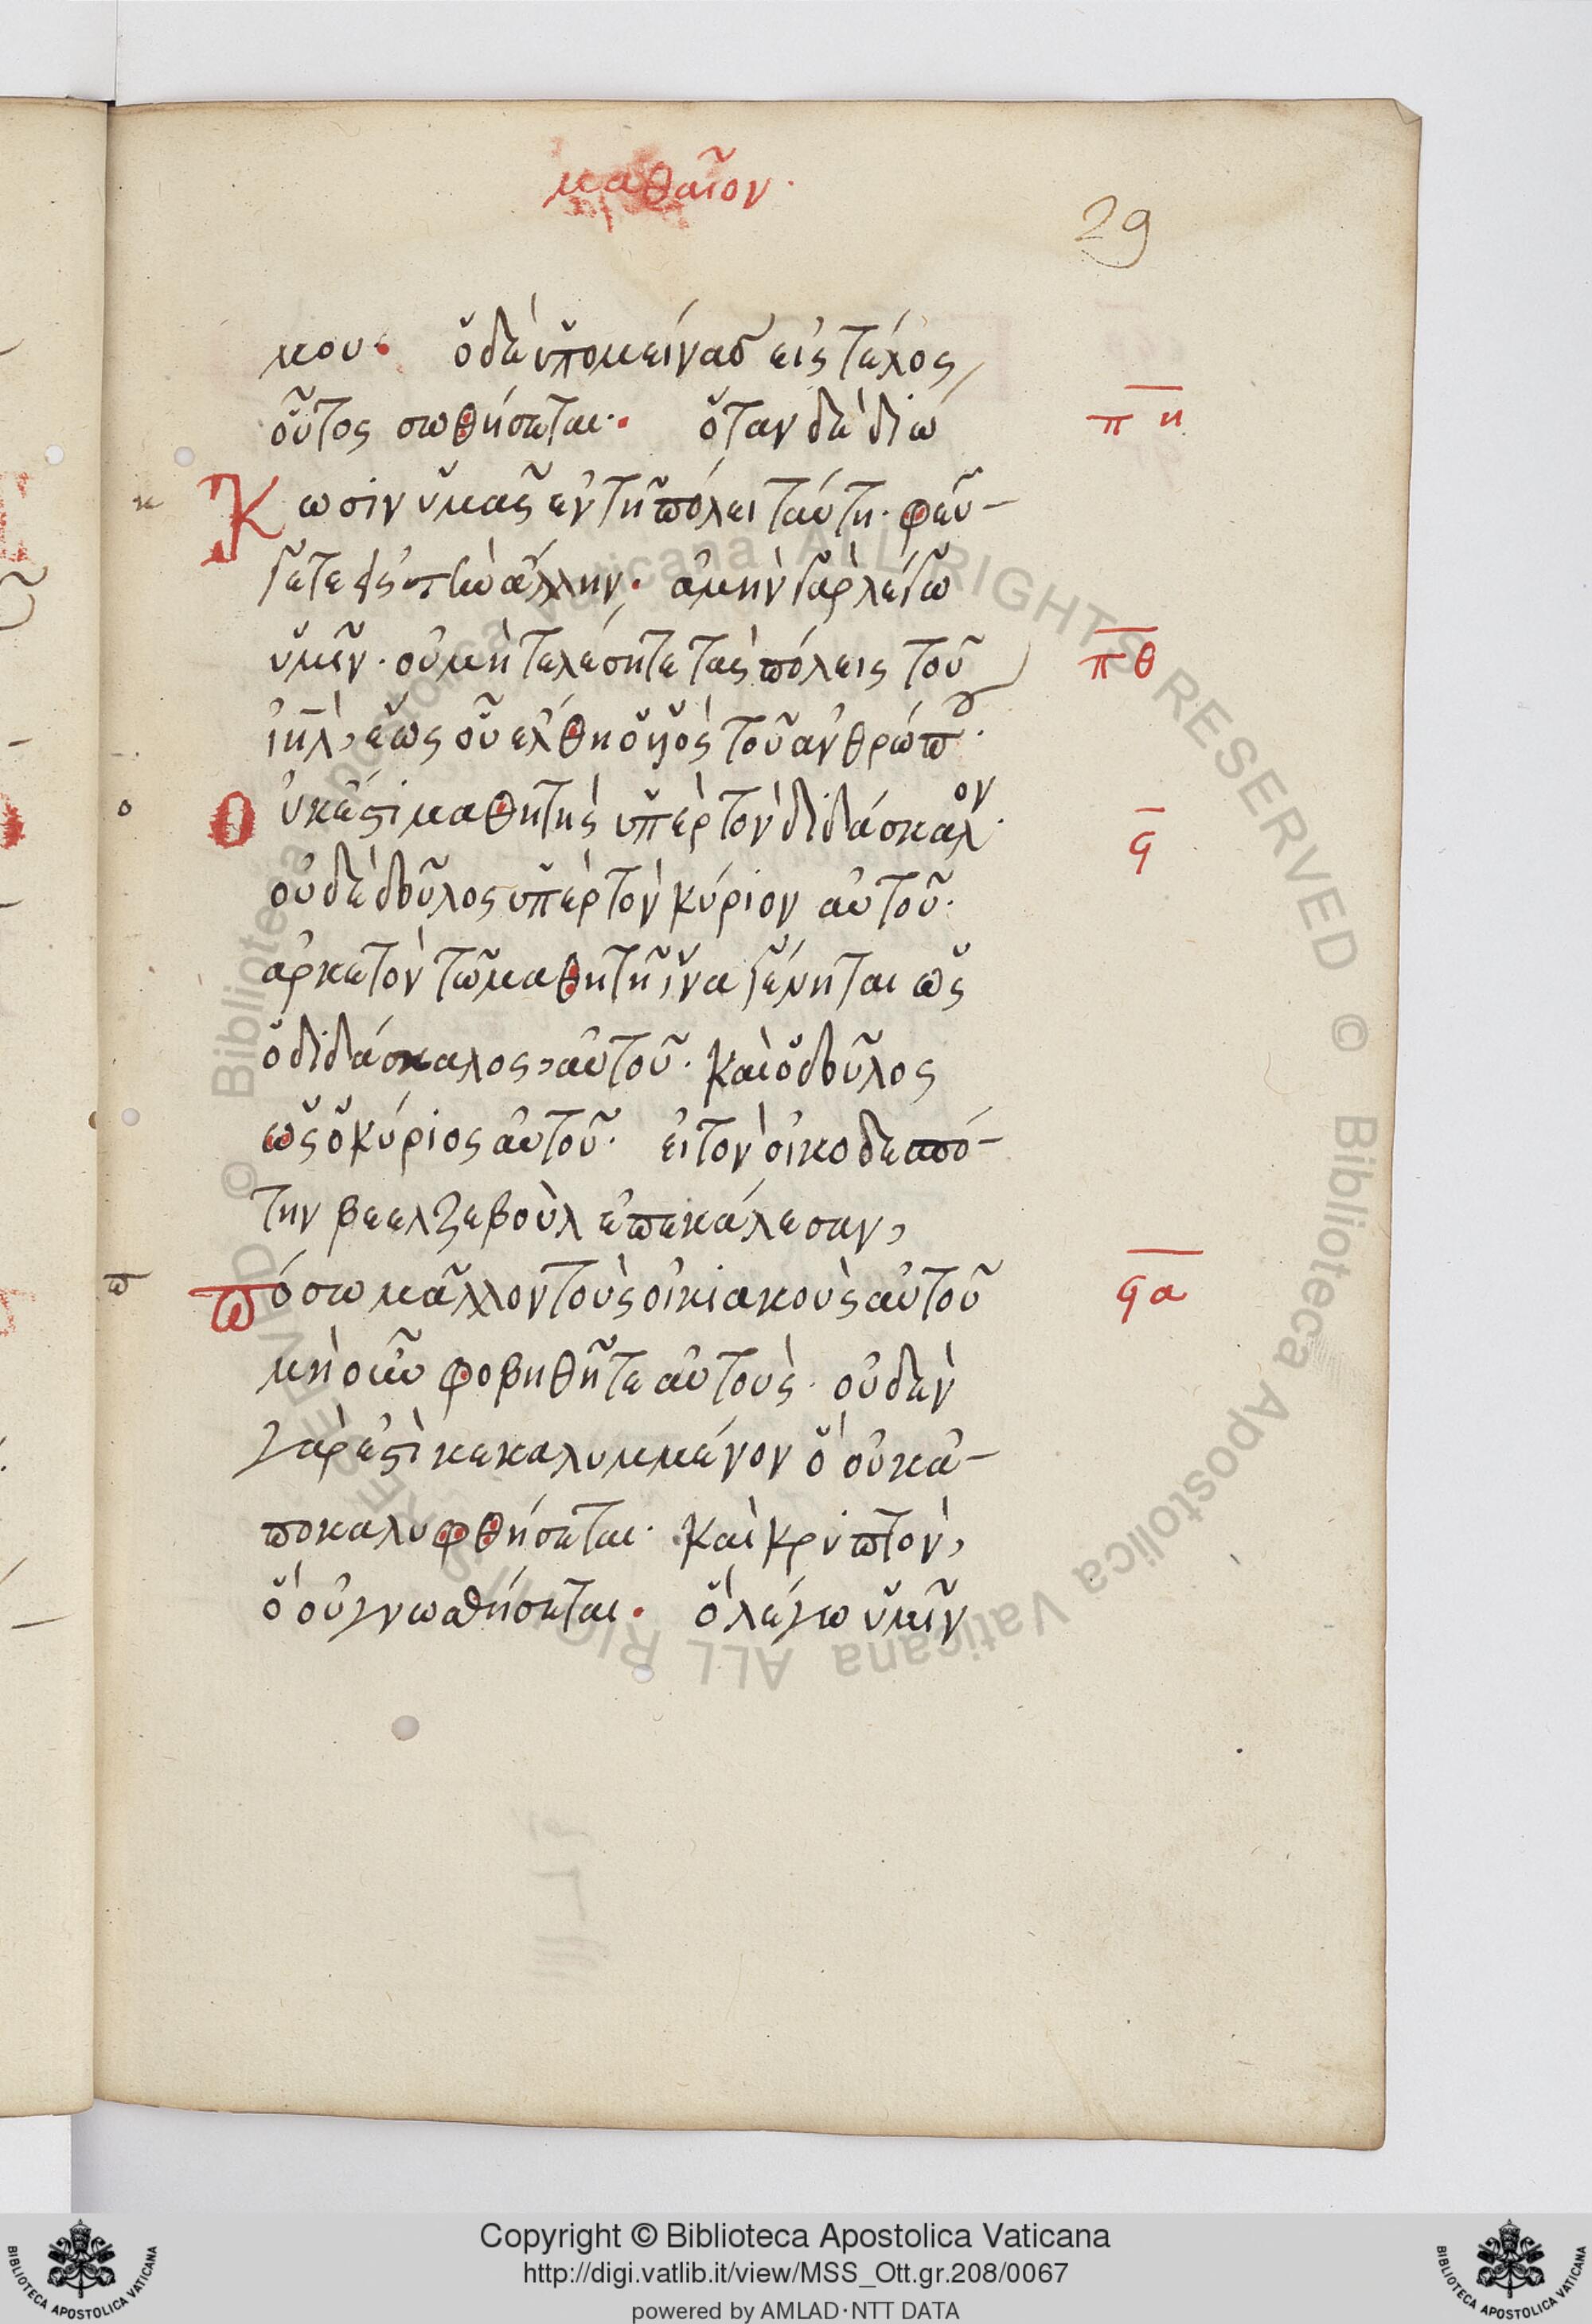 μαθαῖον·
29
μου· ὁ δὲ ὑπομείνας εἰς τέλος,
οὗτος σωθήσεται· ὅταν δὲ διώ
π η
κ
Κωσιν ὑμᾶς ἐν τῇ πόλει ταύτῃ· φεύ-
γετε εἰς τὴν ἄλλην· ἀμὴν γὰρ λέγω
ὑμῖν· οὐ μὴ τελέσητε τὰς πόλεις τοῦ
π θ
ιηλ, ἕως οὗ ἔλθη ὁ υἱὸς τοῦ ἀνθρώπου·
ο
Οὐκ ἔστι μαθητὴς ὑπὲρ τὸν διδάσκαλον·
ϟ
οὐδὲ δοῦλος ὑπὲρ τὸν κύριον αὐτοῦ·
ἀρκετὸν τῶ μαθητῆ ἵνα γένηται ὡς
ὁ διδάσκαλος, αὐτοῦ· καὶ ὁ δοῦλος
ὡς ὁ κύριος αὐτοῦ· εἰ τὸν οἰκοδεσπό-
την βεελζεβοὺλ ἐπεκάλεσαν,
π
πόσω μᾶλλον τοὺς οἰκιακοὺς αὐτοῦ
ϟ α
μὴ οὖν φοβηθῆτε αὐτούς· οὐδὲν
γὰρ ἐστὶ κεκαλυμμένον ὃ οὐκ ἀ-
ποκαλυφθήσεται· καὶ κρυπτὸν,
ὃ οὐ γνωσθήσεται· ὃ λέγω ὑμῖν
Copyright © Biblioteca Apostolica Vaticana
http://digi.vatlib.it/view/MSS_Ott.gr.208/0067
powered by AMLAD·NTT DATA